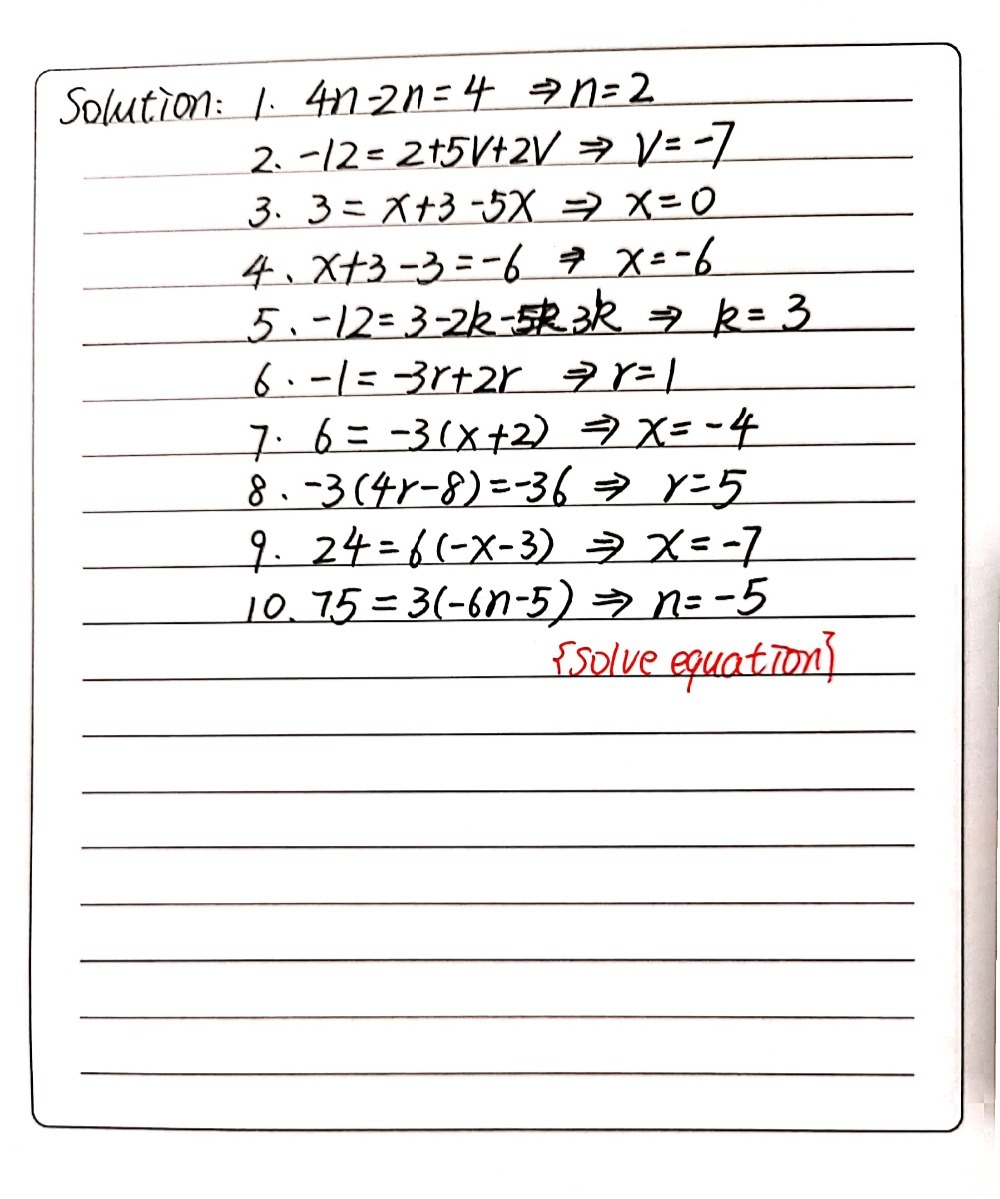 Solution: 1. 4n-2n=4 ⇒n=2
2. -12=2+5V+2V ⇒ V=-7
3. 3=x+3-5x ⇒ x=0
4. x+3-3=-6 ⇒ x=-6
5. -12=3-2k-3k ⇒ k=3
6. -1=-3r+2r ⇒r=1
7. 6=-3(x+2) ⇒ x=-4
8. -3(4r-8)=-36 ⇒ r=5
9. 24=6(-x-3) ⇒ x=-7
10. 75=3(-6n-5) ⇒ n=-5
{solve equation}